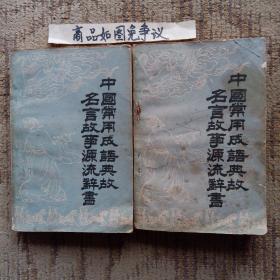 商品如图免争议
中國常用成語典故
名言故事源流辭書
中國常用成語典故
名言故事源流辭書